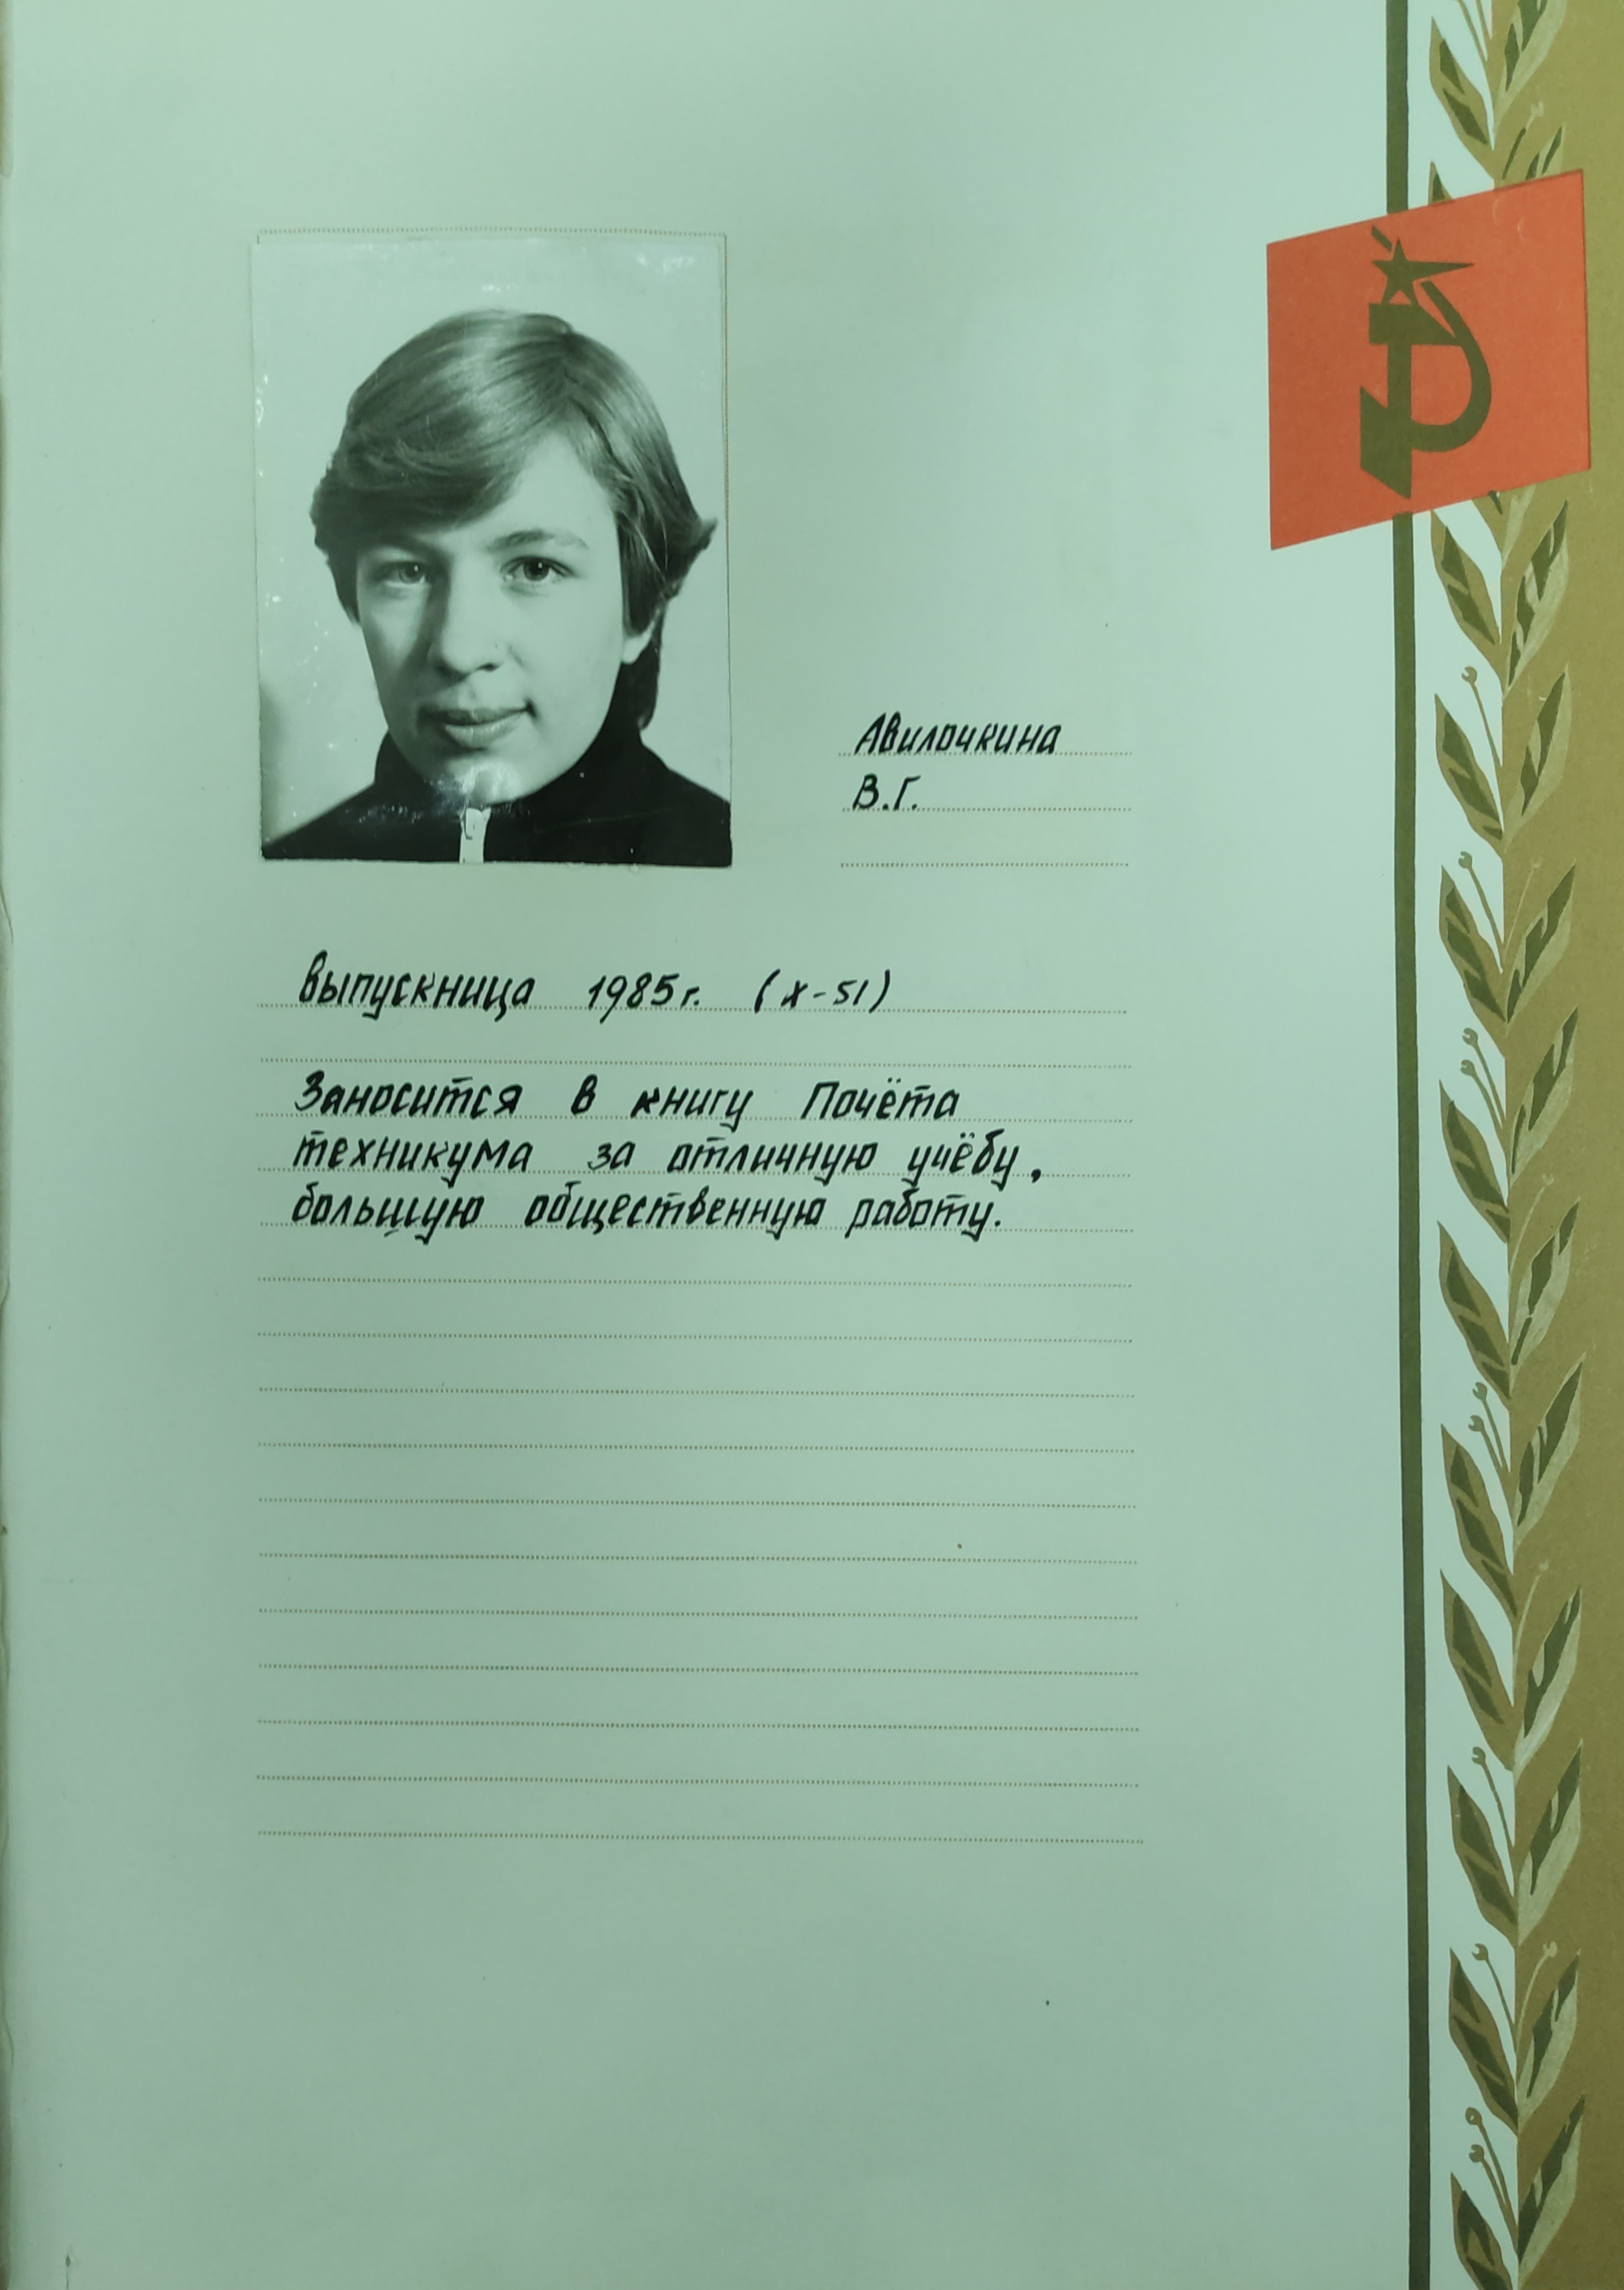 Авилочкина
В.Г.
Выпускница 1985г. (х-51)
Заносится в книгу Почёта
техникума за отличную учёбу,
большую общественную работу.